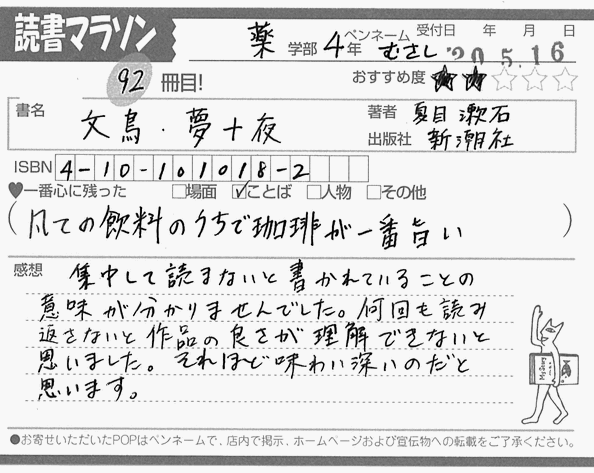 読書マラソン
薬学部 4年 ペンネーム むさし 受付日 年 月 日 '20 5.16
92冊目! おすすめ度 ★★☆☆☆
書名 文鳥・夢十夜
著者 夏目漱石
出版社 新潮社
ISBN 4-10-101018-2
♥一番心に残った □場面 ☑ことば □人物 □その他
(凡ての飲料のうちで珈琲が一番旨い)
感想 集中して読まないと書かれていることの
意味が分かりませんでした。何回も読み
返さないと作品の良さが理解できないと
思いました。それほど味わい深いのだと
思います。
●お寄せいただいたPOPはペンネームで、店内で掲示、ホームページおよび宣伝物への転載をご了承ください。